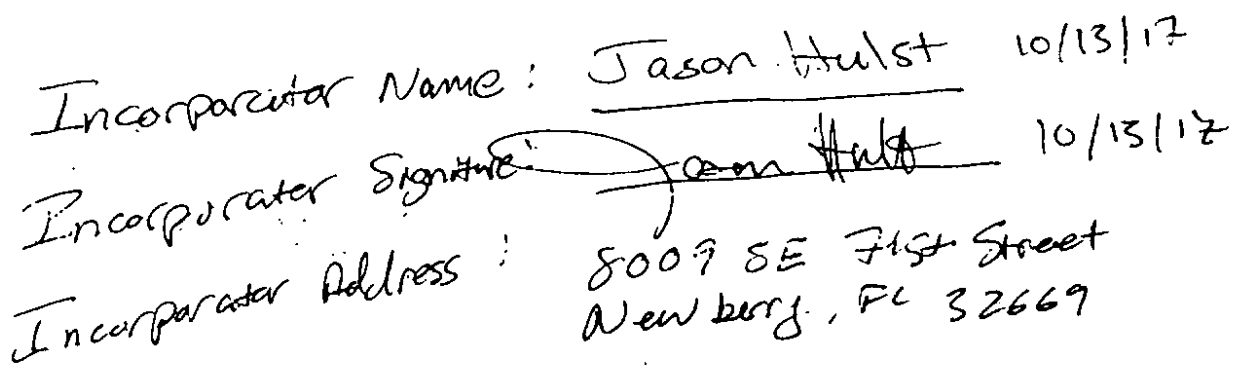 Incorparator Name: Jason Hulst 10/13/17
Incorpurater Signiture: Jason Hulst 10/13/17
Incorparator Address: 8009 SE 71st Street
Newberry, FL 32669